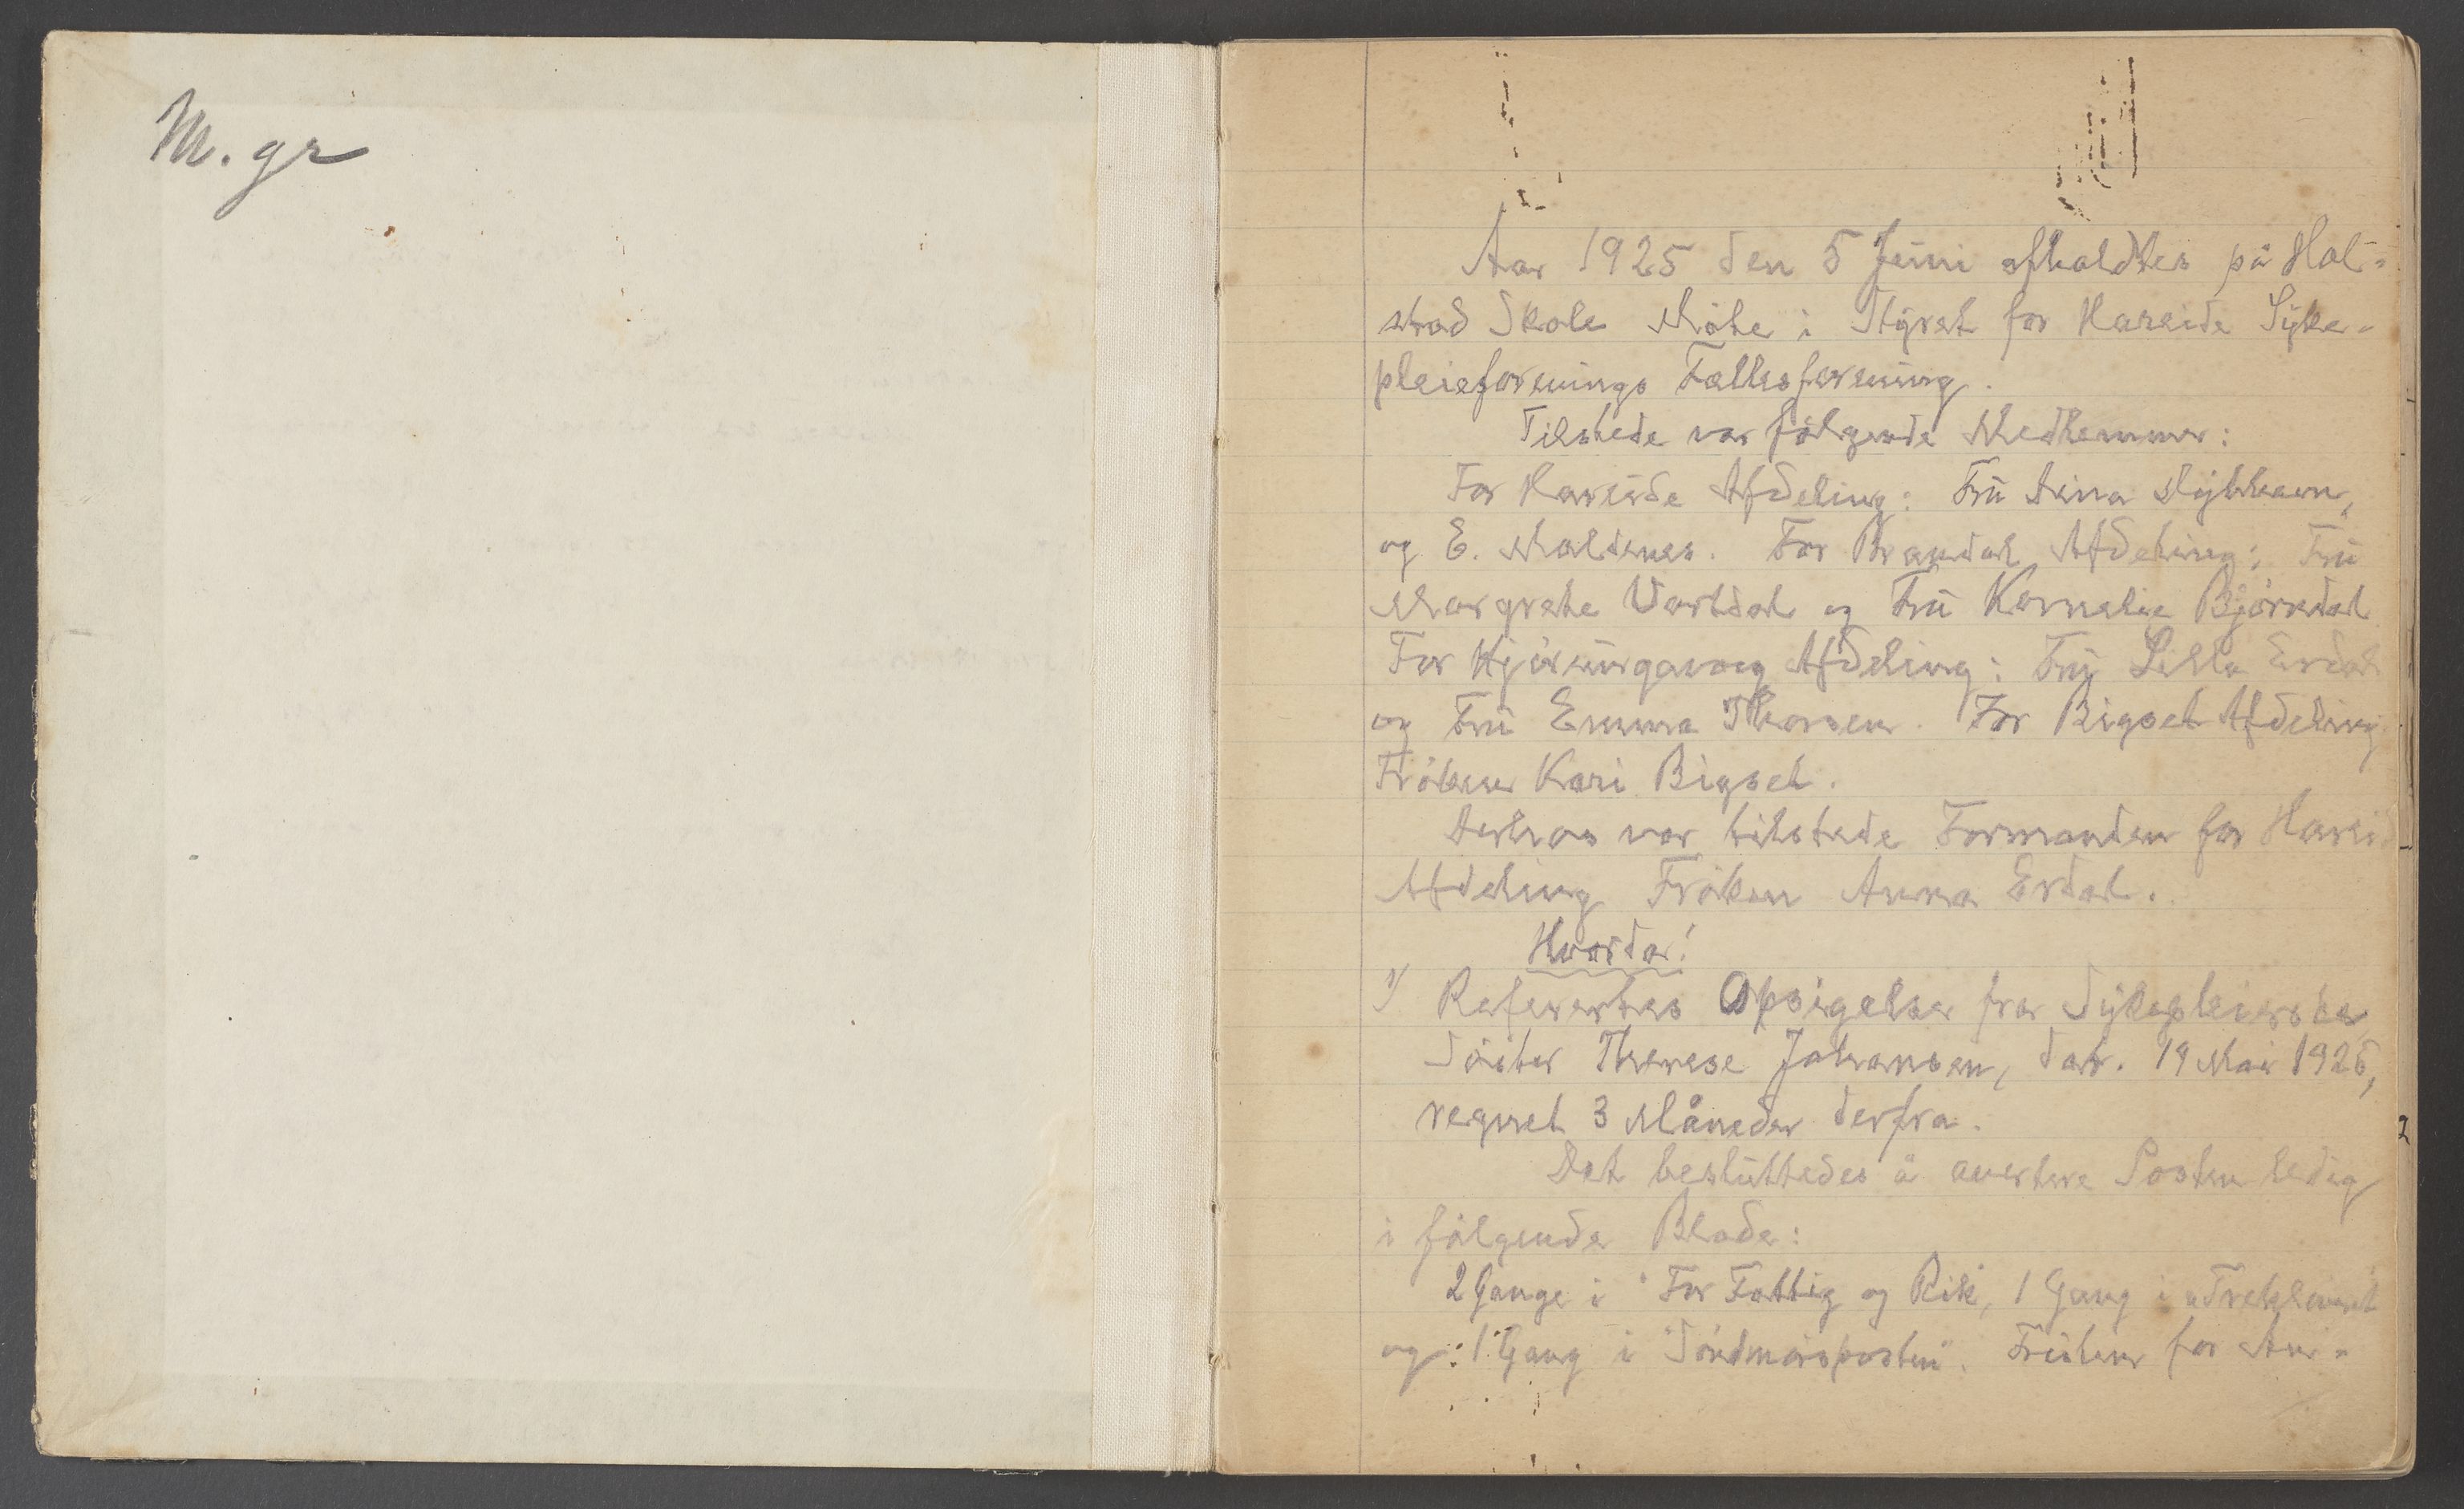 M. gr
Aar 1925 den 5 Juni afholdtes på Hol-
stad Skole Møte i Styret for Hareide Syke-
pleieforenings Fællesforening.
Tilstede var følgende Medlemmer:
For Hareide Afdeling: Fru
og E. Moldenes. For Brandal Afdeling: Fru
Margrethe Vartdal og Fru Kornelie Bjørndal
For Hjørungavaag Afdeling: Fru Erdal
og Fru Emma Thorsen. For Bigset Afdeling
Frøken Kari Bigset.
Derhos var tilstede Formanden for Hareid
Afdeling Frøken Anna Erdal.
Hvorda!
1) Refertes Opsigelse fra Sykepleierske
Søster Therese Johansen, dat. 19 Mai 1925,
regnet 3 Måneder derfra.
Det besluttedes å avertere Posten ledig
i følgende Blade:
2 Gange i "For Fattig og Rik", 1 Gang i "Trekløveret
og 1 Gang i "Søndmørsposten". Fristen for An-
2